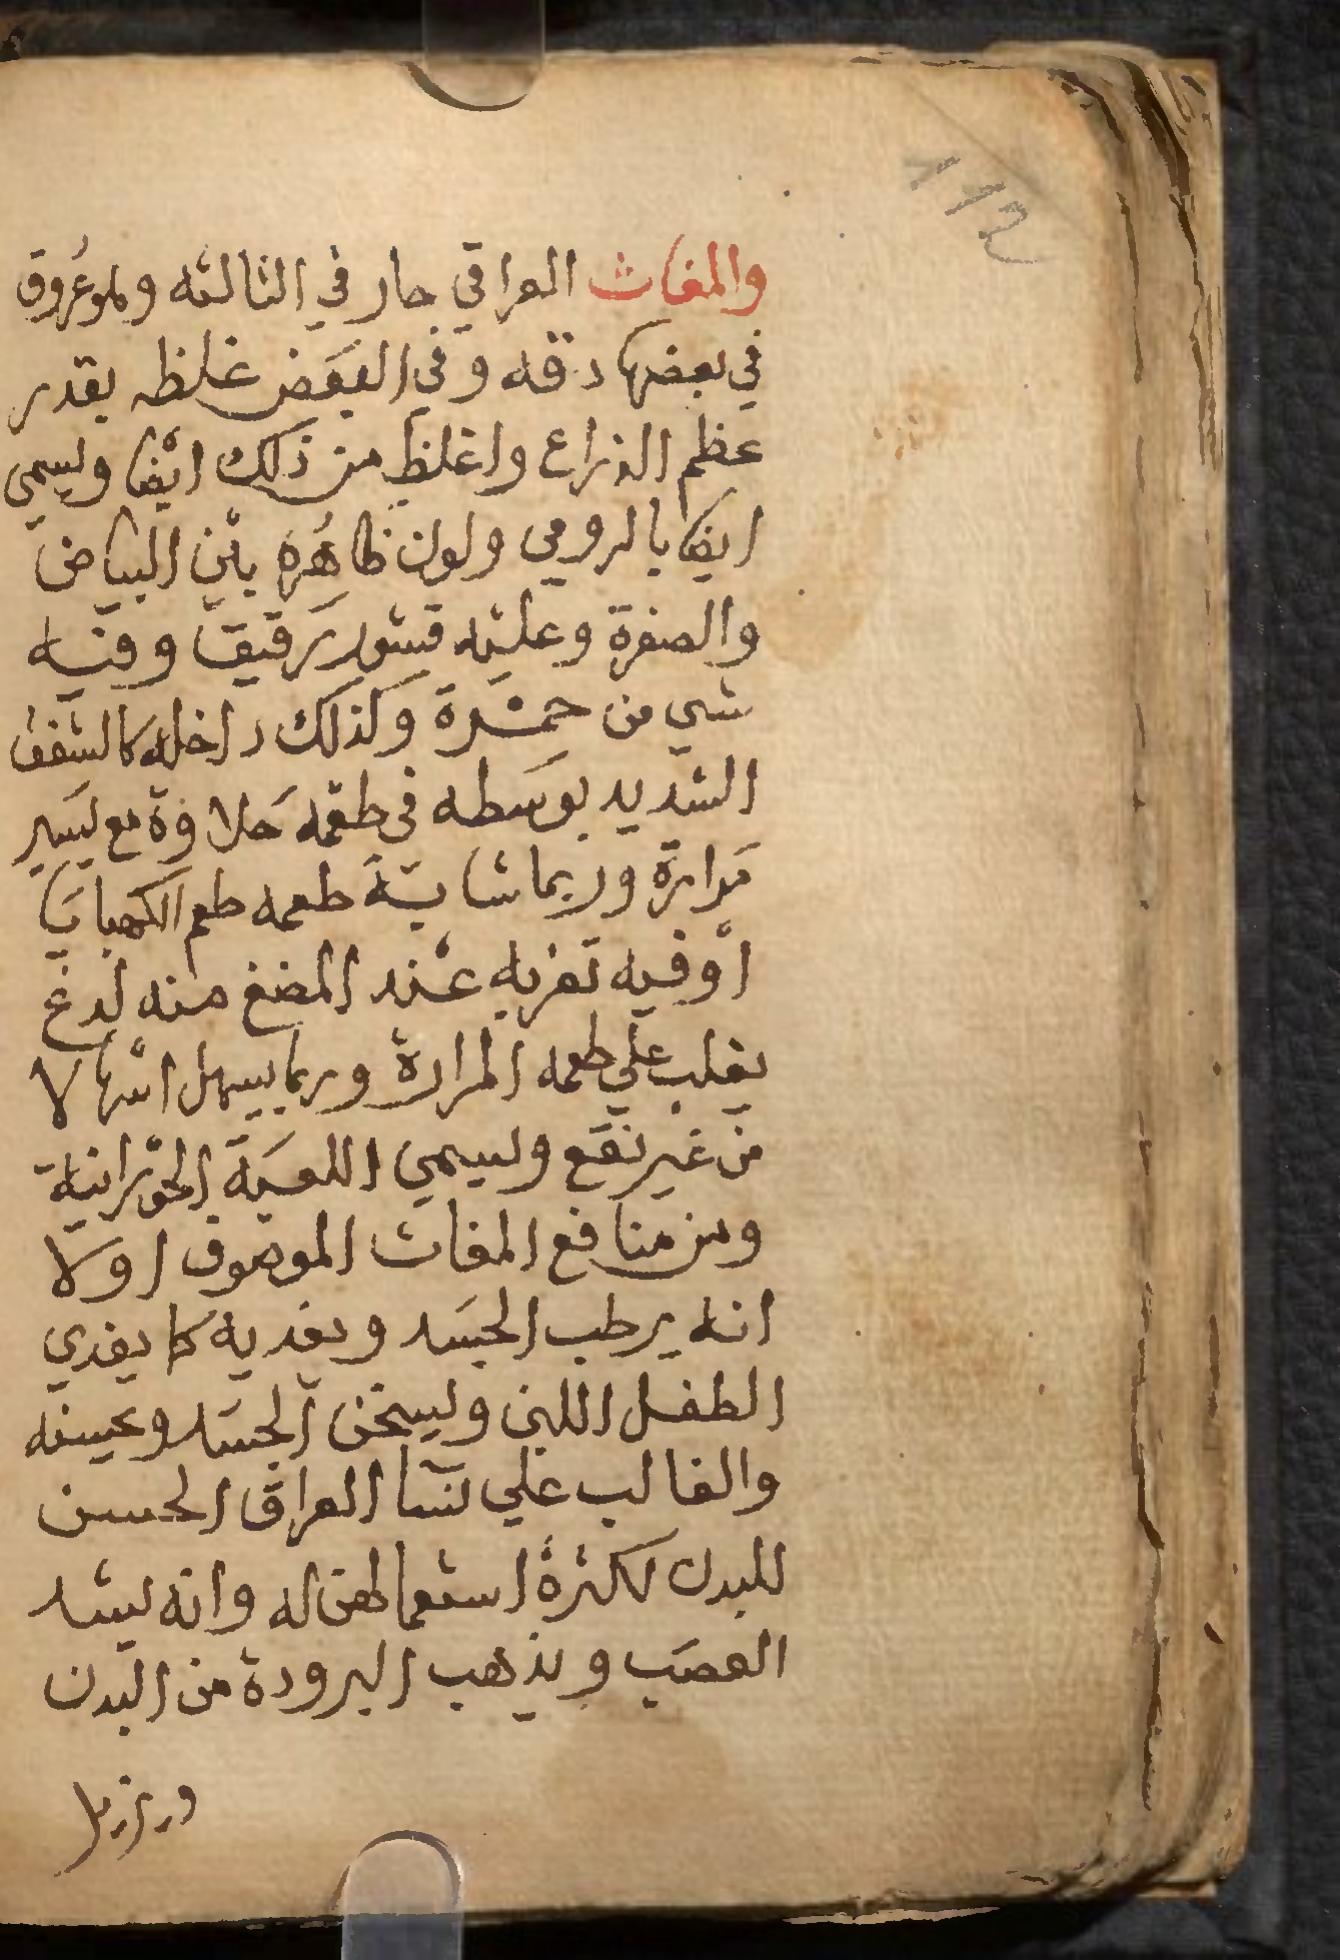 112
والمغاث العراقي حار في الثالثه وهو عروق
في بعضها دقه وفي البعض غلظه بقدر
عظم الذراع واغلظ من ذلك ايضا ويسمي
ايضا بالرومي ولون ظاهره بين البياض
والصفرة وعليه قشور رقيق وفيه
شي من حمرة وكذلك داخله كالشفف
الشديد بوسطه في طعمه حلاوة مع يسير
مرارة وربما شابة طعمه طعم الكهبابا
او فيه تغربه عند المضغ منه لدغ
يغلب علي طعمه المرارة وربما يسهل اسهالا
من غير نفع ويسمي اللعبة الحورانية
ومن منافع المغاث الموصوف اولا
انه يرطب الجسد ويغديه كما يغدي
الطفل اللبن ويسخن الجسد وعيسنه
والغالب علي نسآ العراق الحسن
للبدن لكثرة استعمالهن له وانه يشد
العصب ويذهب البرودة من البدن
ويزيل